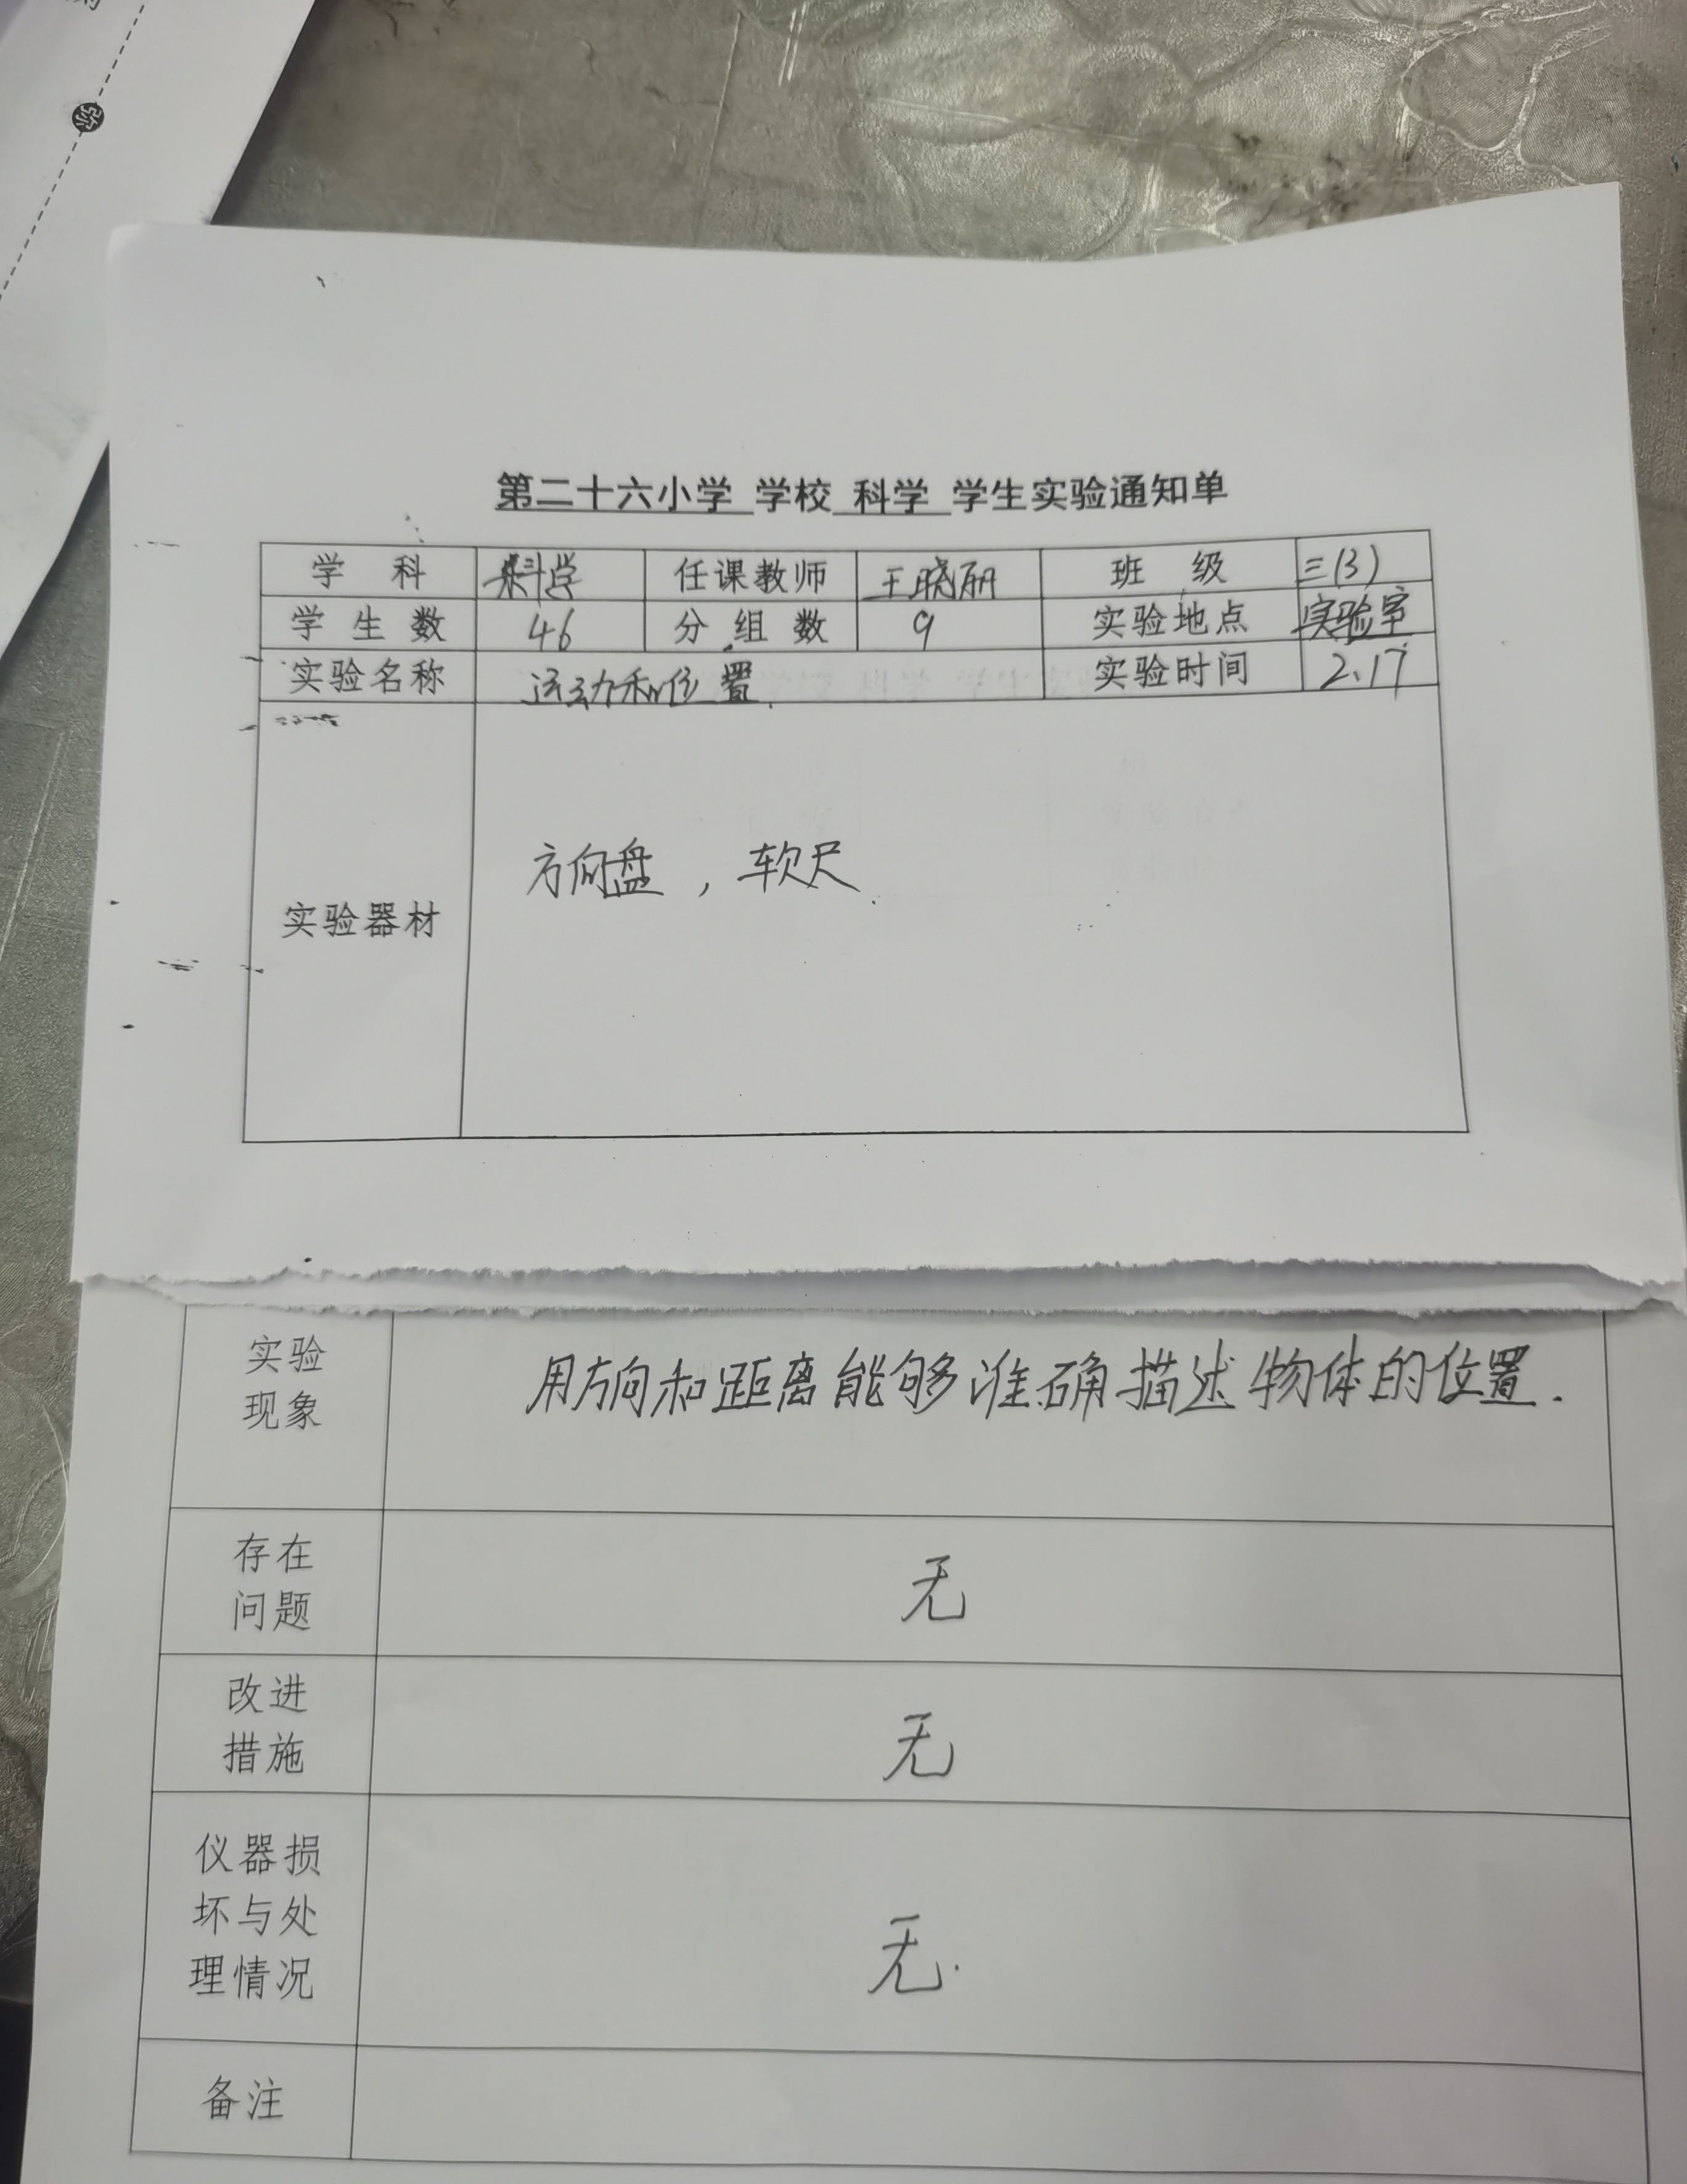 弥
第二十六小学 学校 科学 学生实验通知单
学 科 科学 任课教师 王晓丽 班 级 三(3)
学 生 数 46 分 组 数 9 实验地点 实验室
实验名称 运动和位置 实验时间 2.17
方向盘，软尺
实验器材
实验
现象
用方向和距离能够准确描述物体的位置.
存在
问题
无
改进
措施
无
仪器损
坏与处
理情况
无.
备注